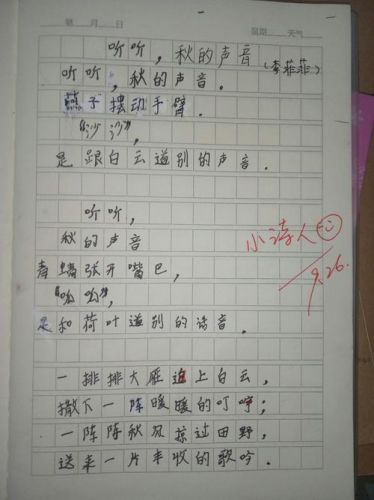 第 月 日 星期 天气
听听，秋的声音
(李菲菲)
听听，秋的声音。
燕子摆动手臂。
“沙沙”，
是跟白云道别的声音。
听听，
秋的声音
青蛙张开嘴巴，
“呱呱”，
是和荷叶道别的话音。
小诗人
9.26.
一排排大雁追上白云，
撒下一阵暖暖的叮咛；
一阵阵秋风掠过田野，
送来一片丰收的歌吟。